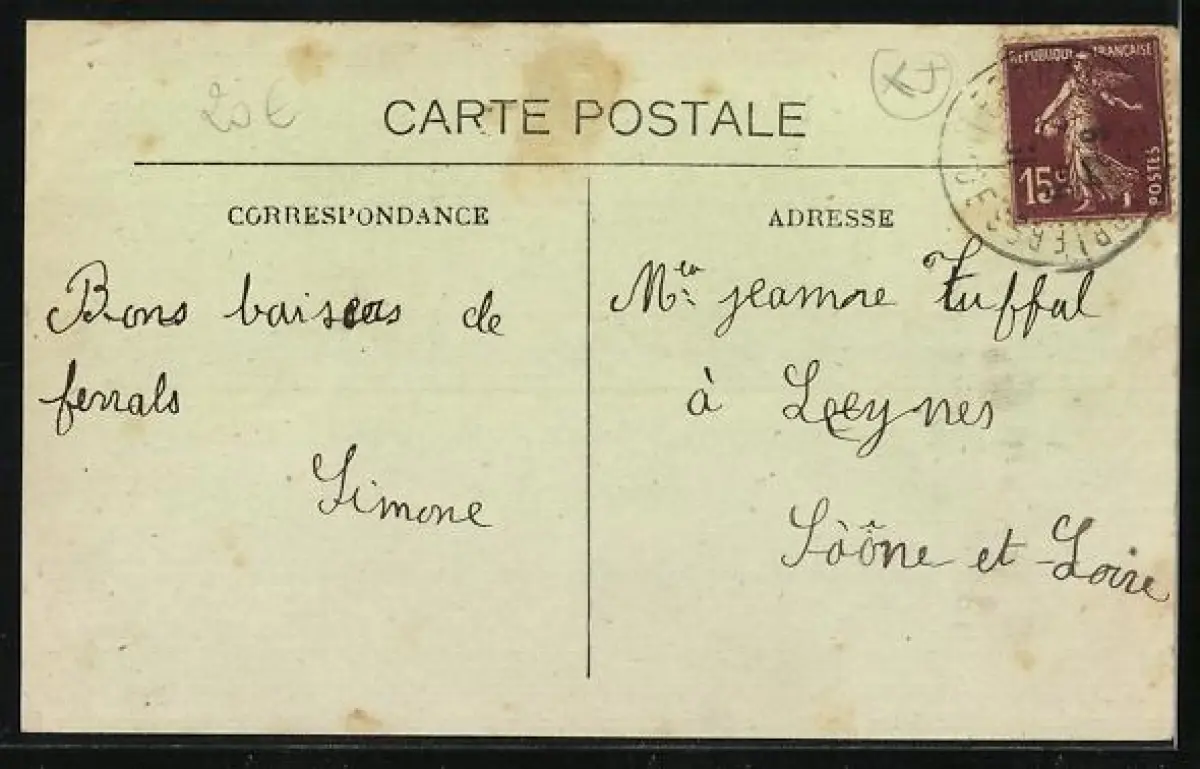 20€
CARTE POSTALE
RÉPUBLIQUE FRANÇAISE
15c
POSTES
CORRESPONDANCE
ADRESSE
Bons baisers de
ferrals
Simone
Mlle jeanne Tuffal
à Leynes
Saône et Loire